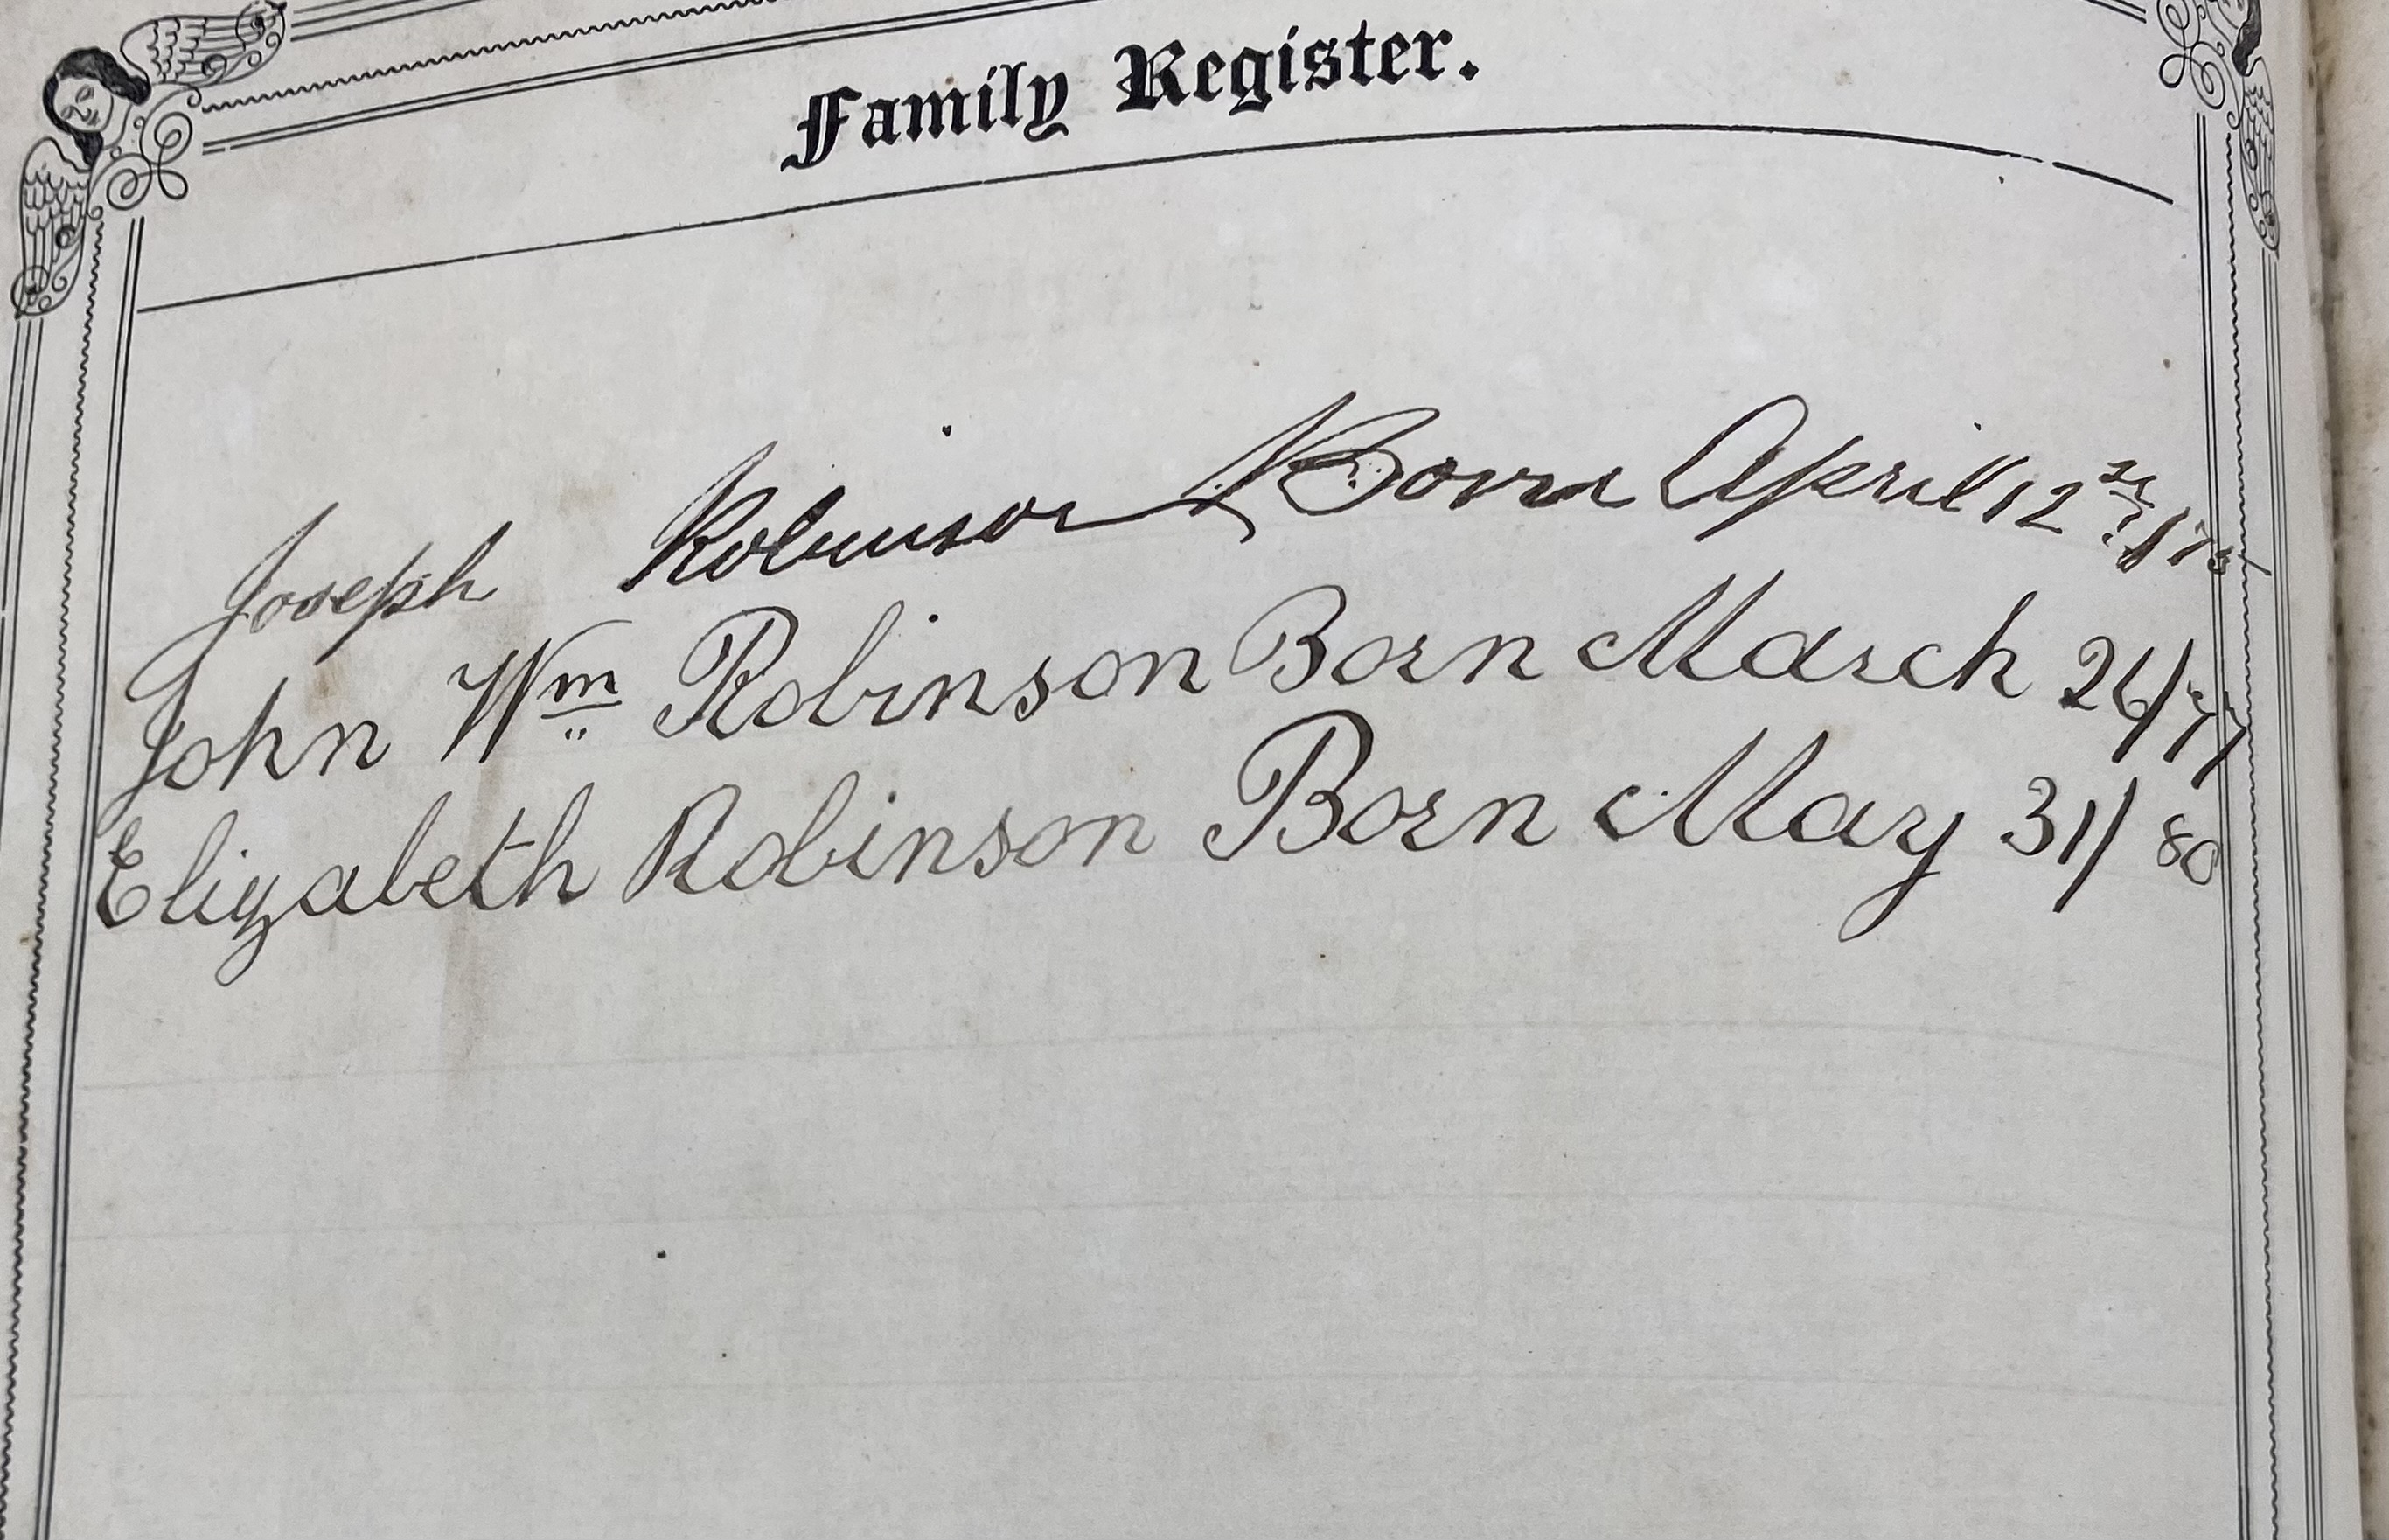 Family Register.
Joseph Robinson Born April 12
John Wm Robinson Born March 26/77
Elizabeth Robinson Born May 31/80